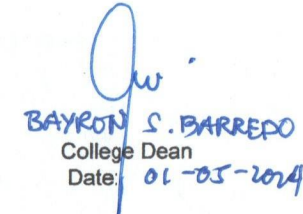 BAYRON S. BARREDO
College Dean
Date: 01-05-2024